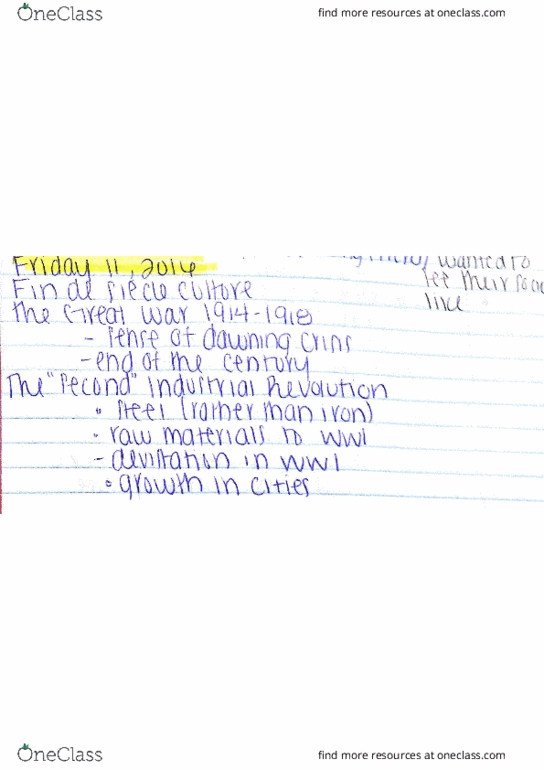 OneClass
find more resources at oneclass.com
wanted to
Friday 11, 2014
see their
Fin de siecle culture
The Great War 1914-1918
- sense of dawning crisis
- end of the century
The "Second" Industrial Revolution
• steel (rather than iron)
• raw materials to WWI
- devistation in WWI
• growth in cities
OneClass
find more resources at oneclass.com